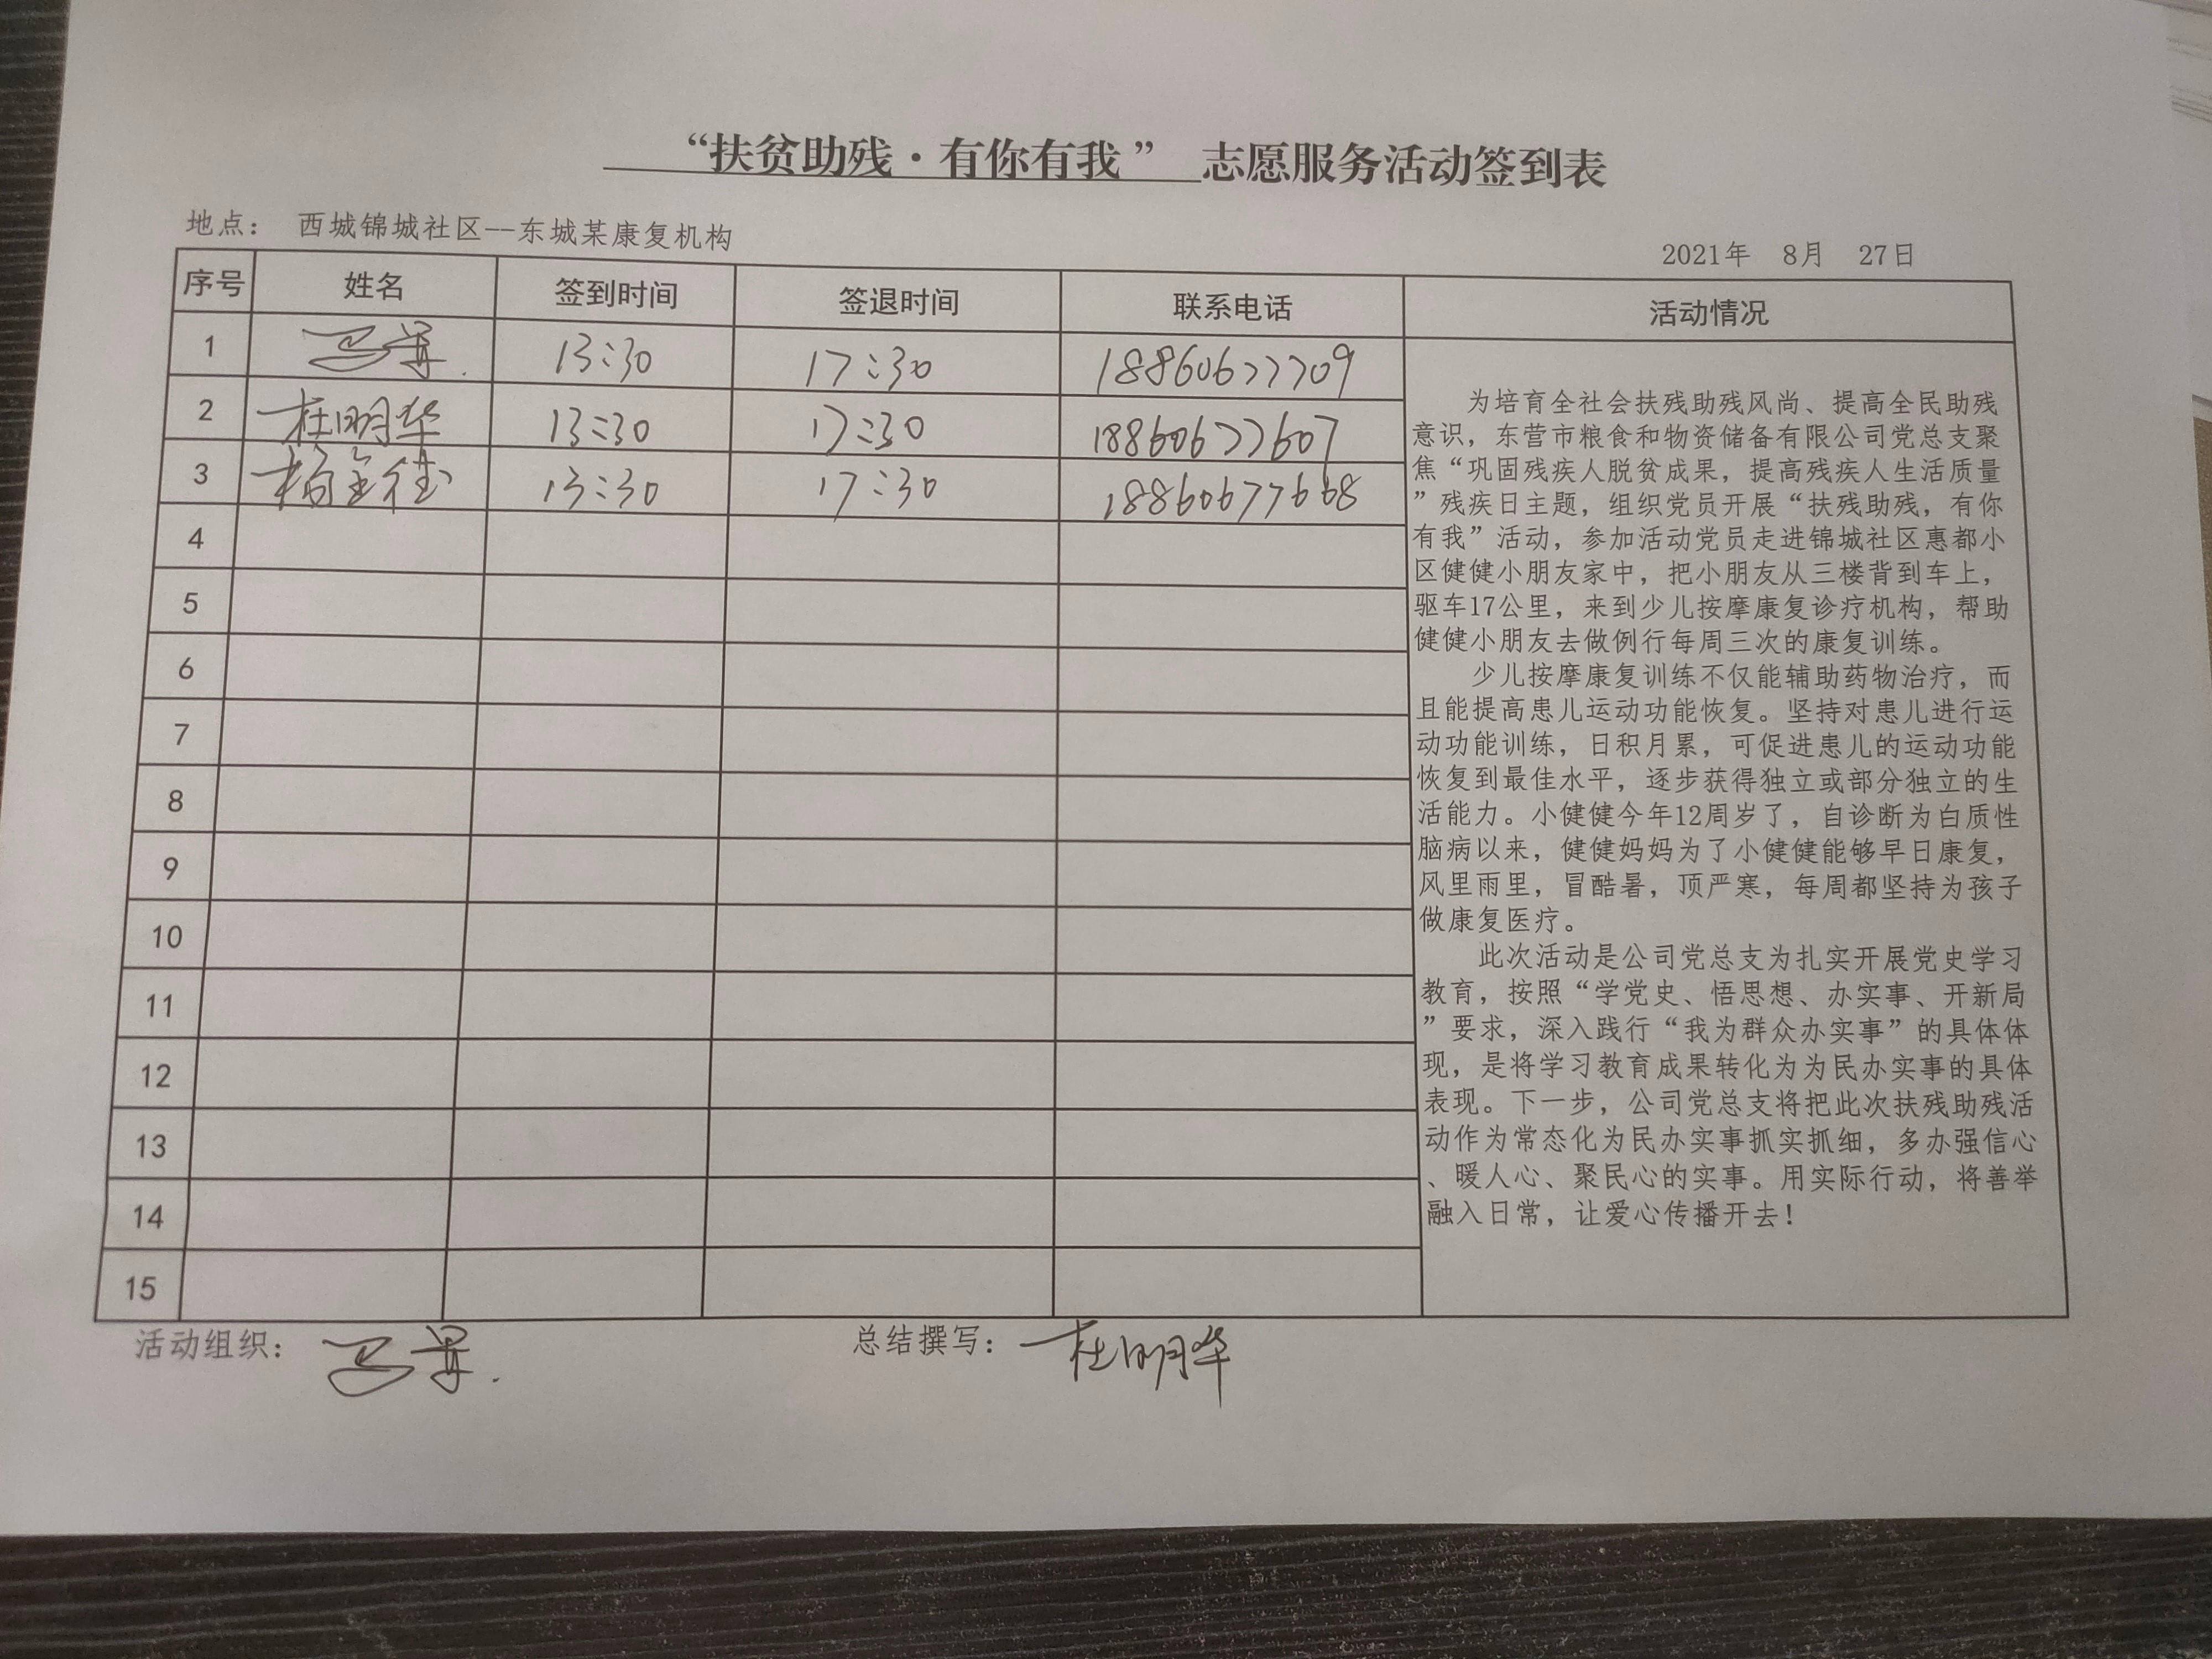 “扶贫助残·有你有我” 志愿服务活动签到表
地点： 西城锦城社区--东城某康复机构
2021年 8月 27日
序号 姓名 签到时间 签退时间 联系电话 活动情况
1 13:30 17:30 18860677709
2 杜明华 13:30 17:30 18860677607
3 13:30 17:30 18860677668
4
5
6
7
8
9
10
11
12
13
14
15
为培育全社会扶残助残风尚、提高全民助残
意识，东营市粮食和物资储备有限公司党总支聚
焦“巩固残疾人脱贫成果，提高残疾人生活质量
”残疾日主题，组织党员开展“扶残助残，有你
有我”活动，参加活动党员走进锦城社区惠都小
区健健小朋友家中，把小朋友从三楼背到车上，
驱车17公里，来到少儿按摩康复诊疗机构，帮助
健健小朋友去做例行每周三次的康复训练。
少儿按摩康复训练不仅能辅助药物治疗，而
且能提高患儿运动功能恢复。坚持对患儿进行运
动功能训练，日积月累，可促进患儿的运动功能
恢复到最佳水平，逐步获得独立或部分独立的生
活能力。小健健今年12周岁了，自诊断为白质性
脑病以来，健健妈妈为了小健健能够早日康复，
风里雨里，冒酷暑，顶严寒，每周都坚持为孩子
做康复医疗。
此次活动是公司党总支为扎实开展党史学习
教育，按照“学党史、悟思想、办实事、开新局
”要求，深入践行“我为群众办实事”的具体体
现，是将学习教育成果转化为为民办实事的具体
表现。下一步，公司党总支将把此次扶残助残活
动作为常态化为民办实事抓实抓细，多办强信心
、暖人心、聚民心的实事。用实际行动，将善举
融入日常，让爱心传播开去！
活动组织： 总结撰写：杜明华